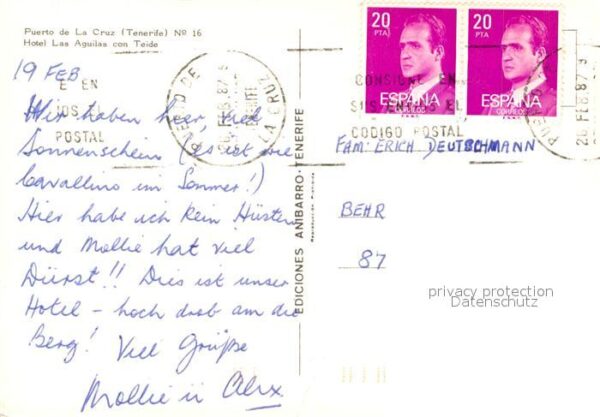 Puerto de La Cruz (Tenerife) Nº 16
Hotel Las Aguilas con Teide
19 FEB
Wir haben hier, viel
Sonnenschein (es ist wie
Cavallino im Sommer!)
Hier habe ich kein Hüsten
und Mollie hat viel
Dürst!! Dies ist unser
Hotel - hoch drob am die
Berg! Viel Grüße
Mollie ü Alex
EDICIONES ANIBARRO-TENERIFE
20
PTA
ESPAÑA
CORREOS
20
PTA
ESPAÑA
CORREOS
E EN
OS EL
POSTAL
PUERTO DE
LA CRUZ
20 FEB.87
CONSIGNE EN
SUS ENVIOS EL
CODIGO POSTAL
20 FEB.87
FAM: ERICH DEUTSCHMANN
BEHR
87
privacy protection
Datenschutz